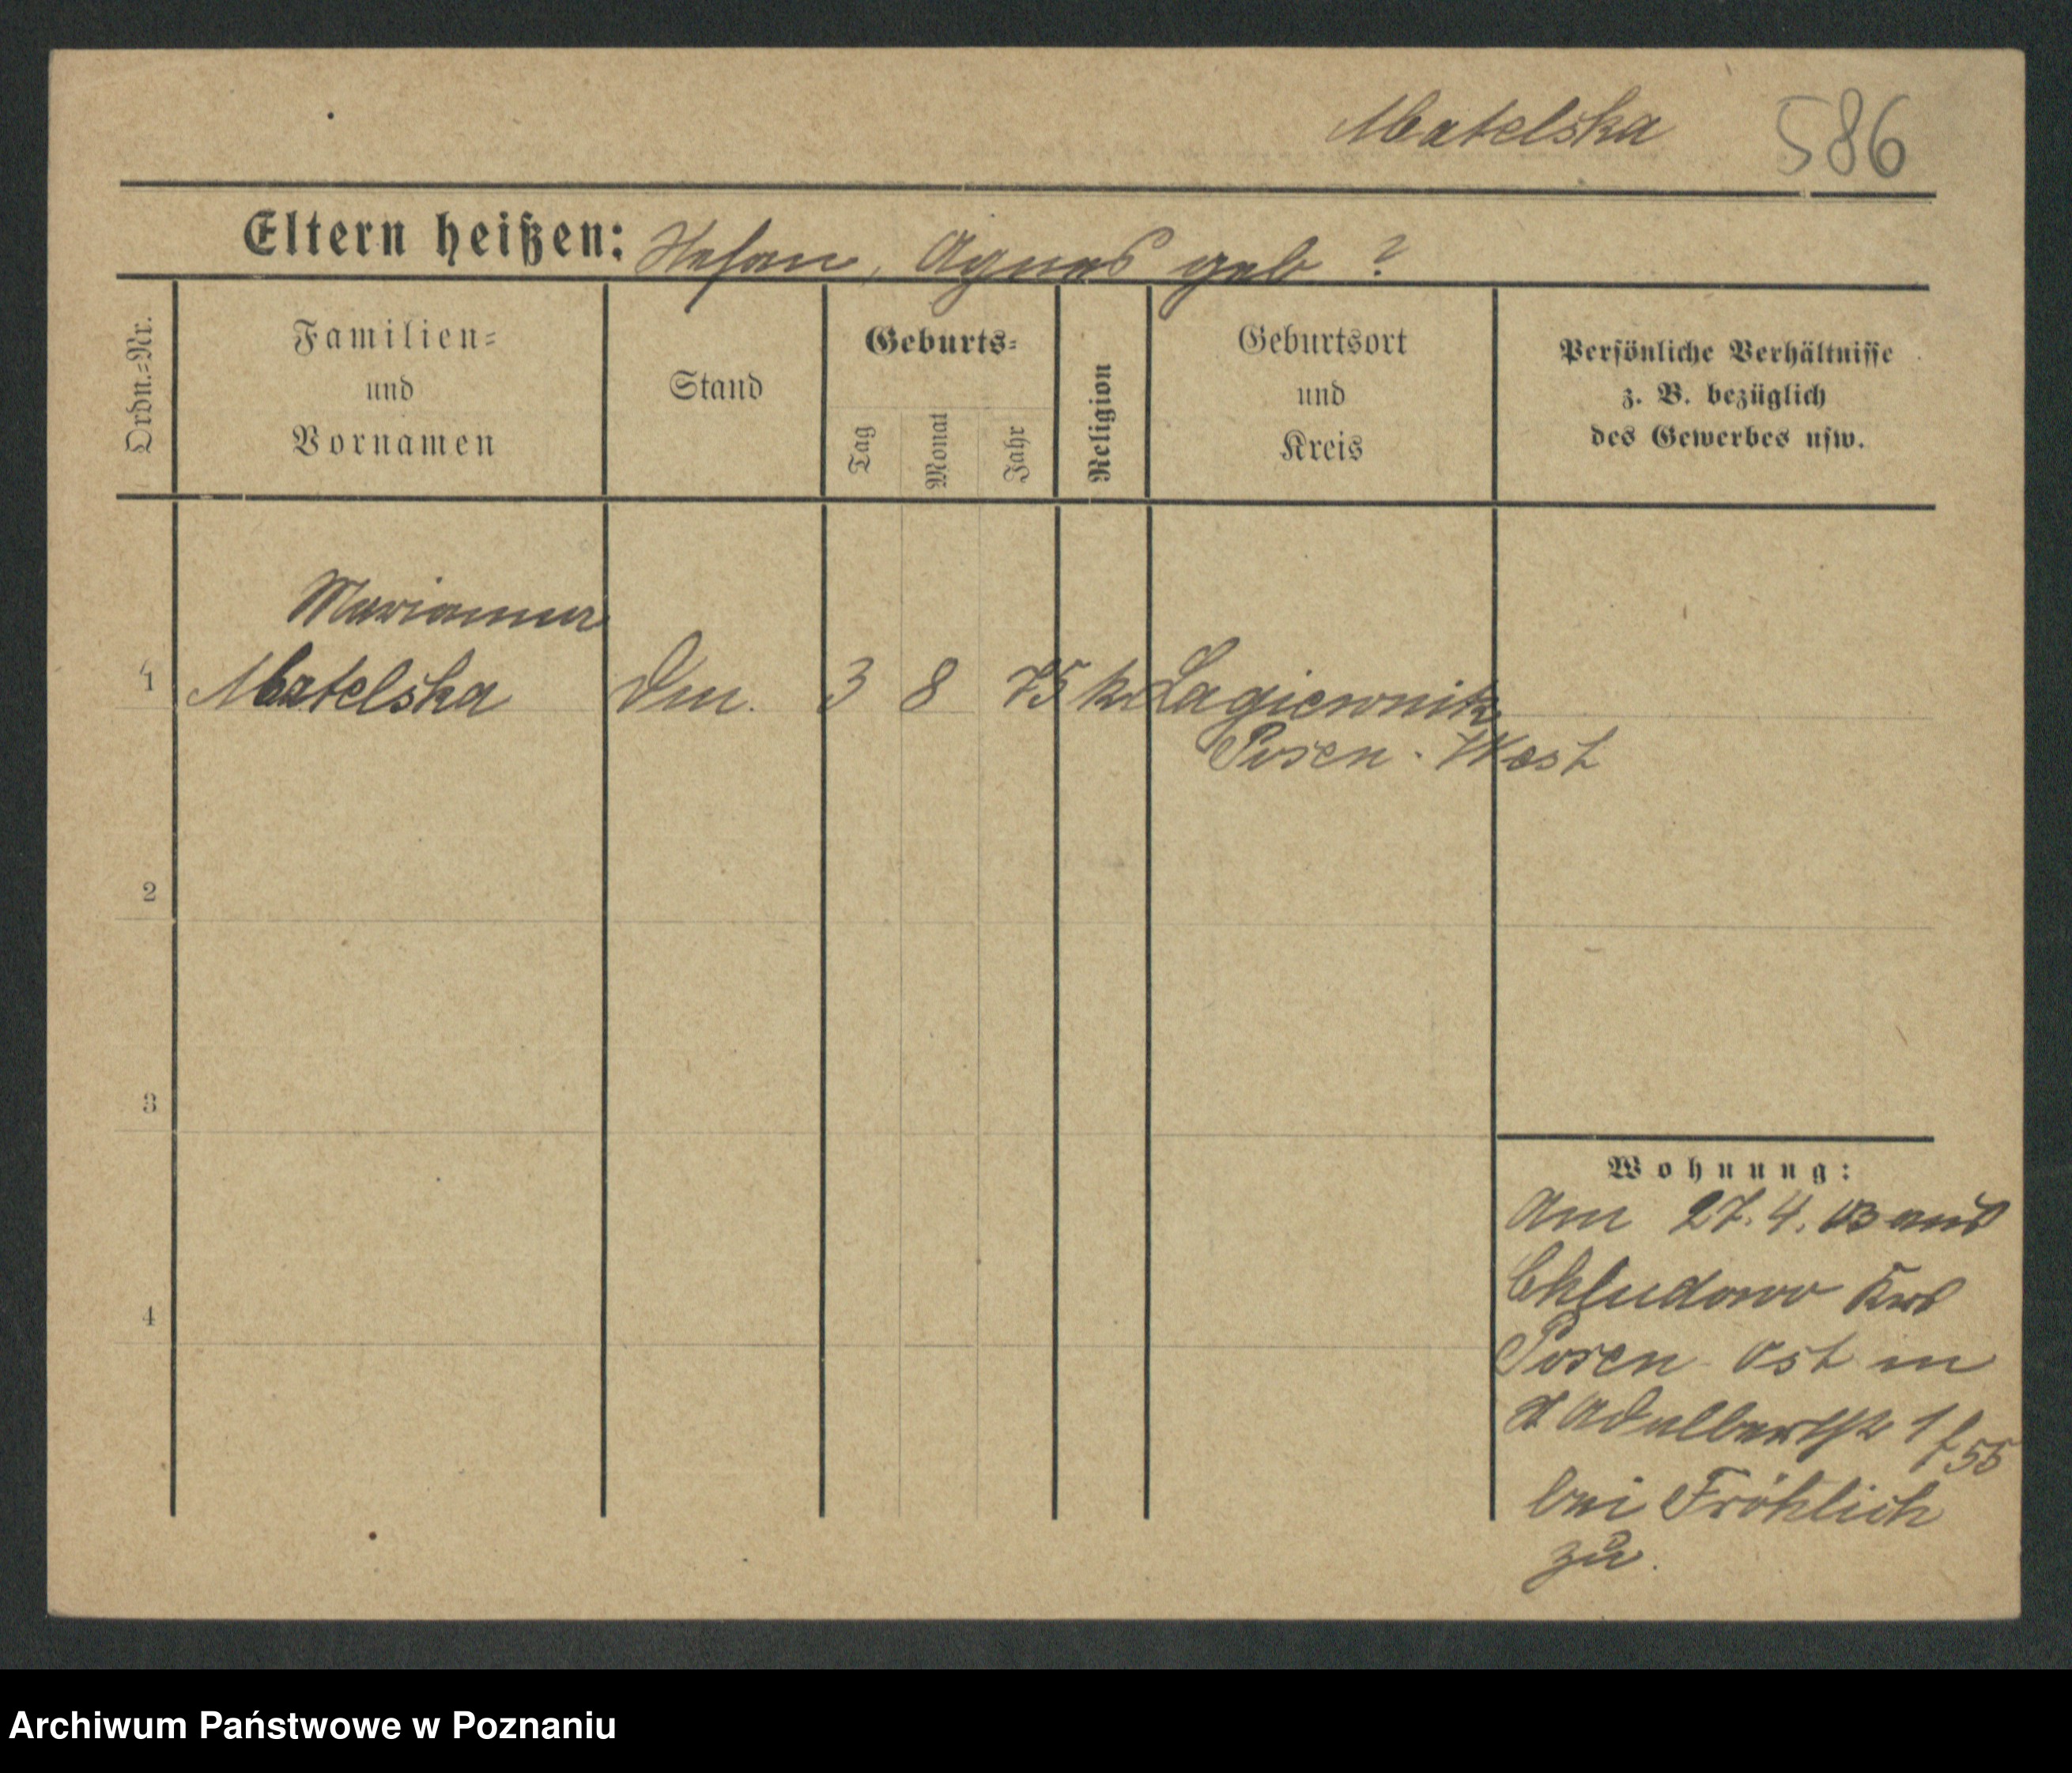 Matelska 586
Eltern heißen: Stefan, Agnes geb ?
Ordn.-Nr.
Familien-
und
Vornamen
Stand
Geburts-
Tag
Monat
Jahr
Religion
Geburtsort
und
Kreis
Persönliche Verhältnisse
z. B. bezüglich
des Gewerbes usw.
Marianna
1 Matelska 3 8 75 Lagiewnik
Posen-West
2
3
4
Wohnung:
Am 27. 4. 03 aus
Chludowo Krs
Posen Ost in
Adalbertstr 1
bei Fröhlich
zu.
Archiwum Państwowe w Poznaniu